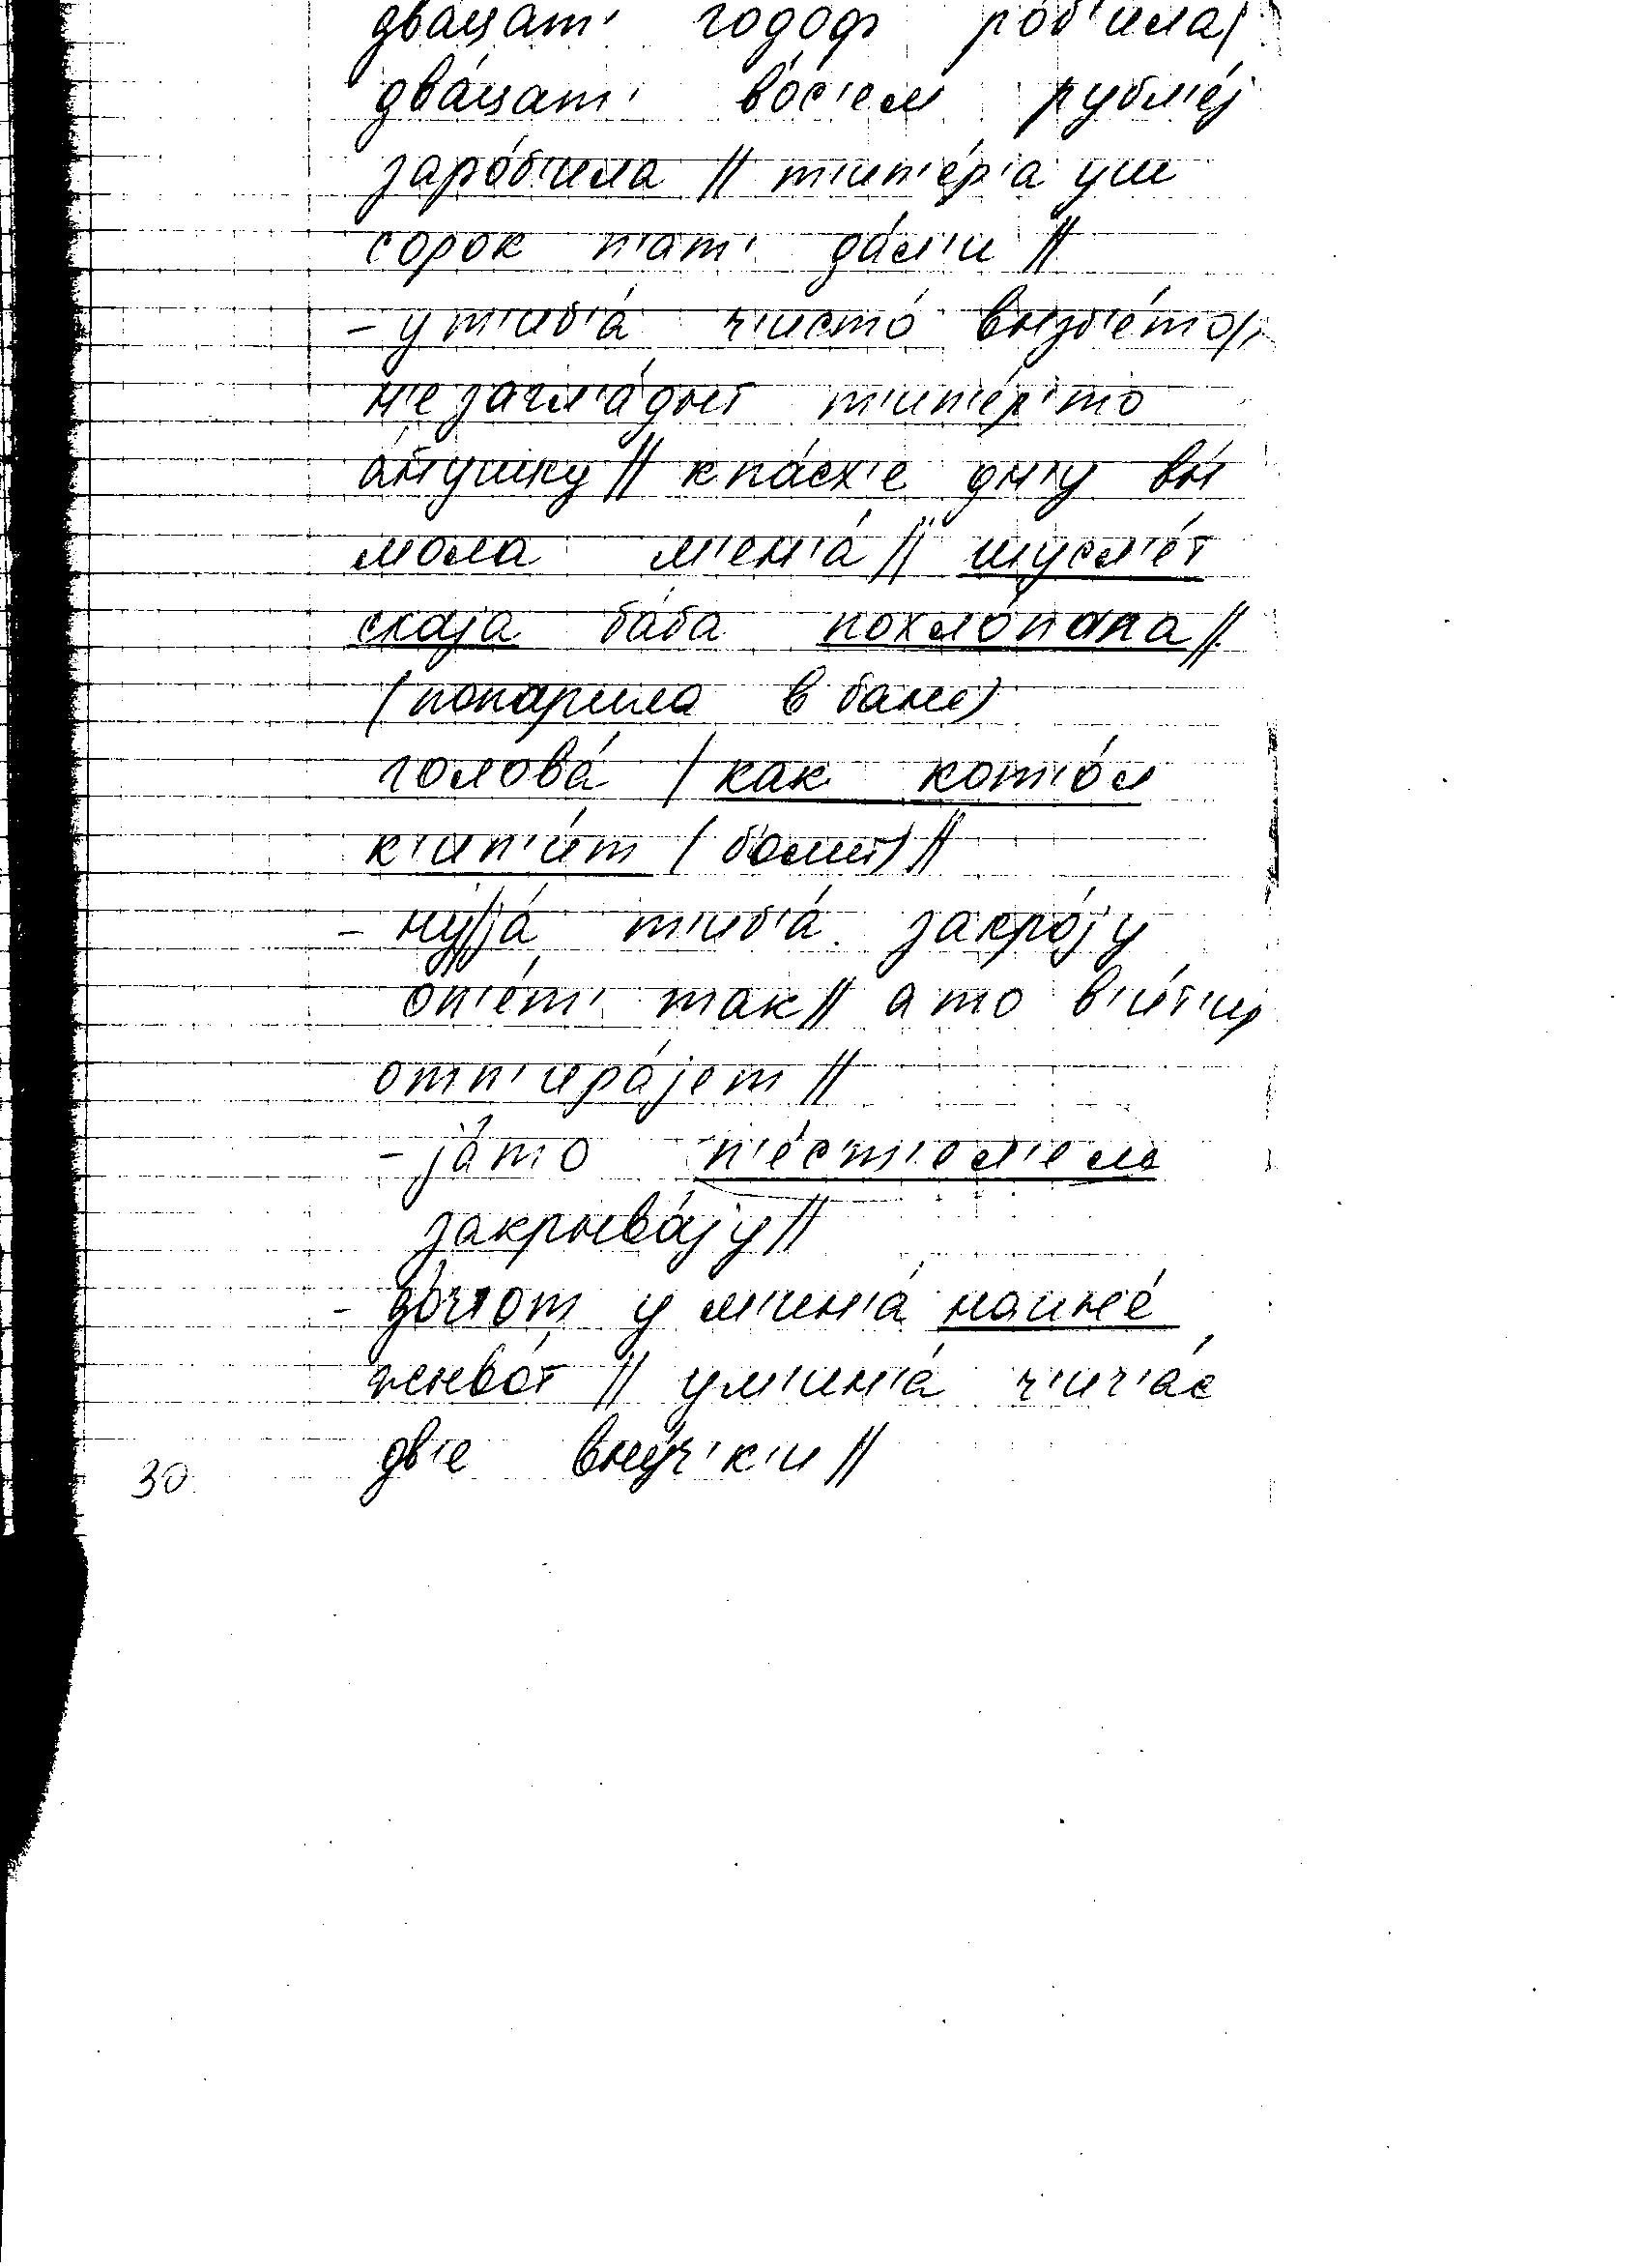 два́цат' годоф ро́б'ила/
два́цат' во́с'ем рубл'е́j
заро́б'ила // т'ип'е́р'а уш
сорок п'ат' да́л'и //
- у т'иб'а́ ч'исто́ в'изб'е́то/,
н'е загл'а́дыт т'ип'е́р'то
ба́йушку // к па́сх'е дн'у вы́
мола м'ен'а́ // шусл'е́т
скаjа ба́ба похло́пала //
(попарила в бане)
голова́ / как кот'о́л
к'ип'и́т (болит) //
- ну//jа́ т'иб'а́ закро́jу
оп'е́т' так // а то в'и́т'ир
отп'ира́jет //
- jа́ то п'е́ст'ел'ем
закрыва́jу //
- до́ч'от у м'ин'а́ наине́
жывот // у м'ин'а́ ч'ич'а́с
дв'е вну́ч'к'и //
30